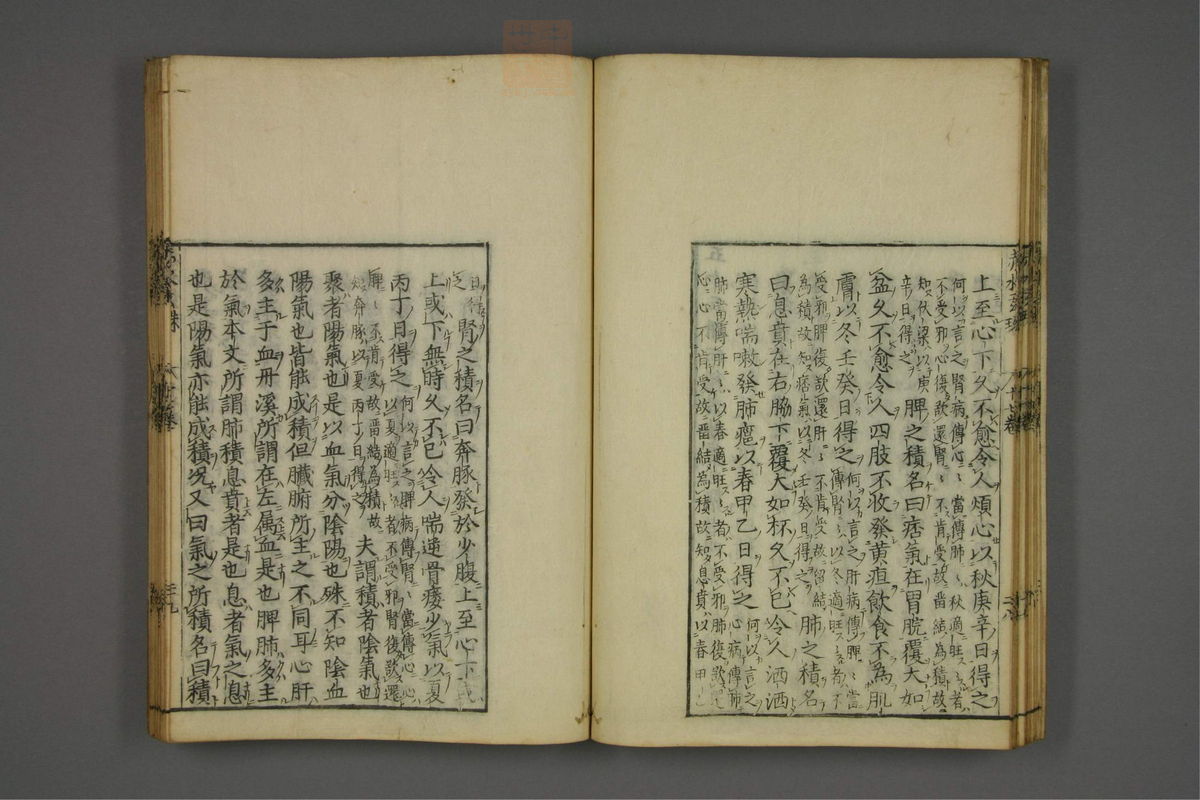 上至心下久不愈令人煩心以秋庚辛日得之
何以言之腎病傳心心當傳肺肺秋適旺旺者
不受邪心復欲還腎腎不肯受故畱結為積故
知伏梁以庚
辛日得之
脾之積名曰痞氣在胃脘覆大如
盆久不愈令人四肢不收發黄疸飲食不為肌
膚以冬壬癸日得之
何以言之肝病傳脾脾當
傳腎腎以冬適旺旺者不
受邪脾復欲還肝肝不肯受故留結
為積故知痞氣以冬壬癸日得之
肺之積名
曰息賁在右脇下覆大如杯久不已令人洒洒
寒熱喘嗽發肺癰以春甲乙日得之
何以言之
心病傳肺
肺當傳肝肝以春適旺旺者不受邪肺復欲還
心心不肯受故畱結為積故知息賁以春甲乙
日得之
腎之積名曰奔豚發於少腹上至心下或
上或下無時久不已令人喘逆骨痿少氣以夏
丙丁日得之
何以言之脾病傳腎腎當傳心心
以夏適旺旺者不受邪腎復欲還
脾脾不肯受故畱結為積故
知奔豚以夏丙丁日得之
夫謂積者陰氣也
聚者陽氣也是以血氣分陰陽也殊不知陰血
陽氣也皆能成積但臟腑所主之不同耳心肝
多主于血丹溪所謂在左属血是也脾肺多主
於氣本文所謂肺積息賁者是也息者氣之息
也是陽氣亦能成積况又曰氣之所積名曰積